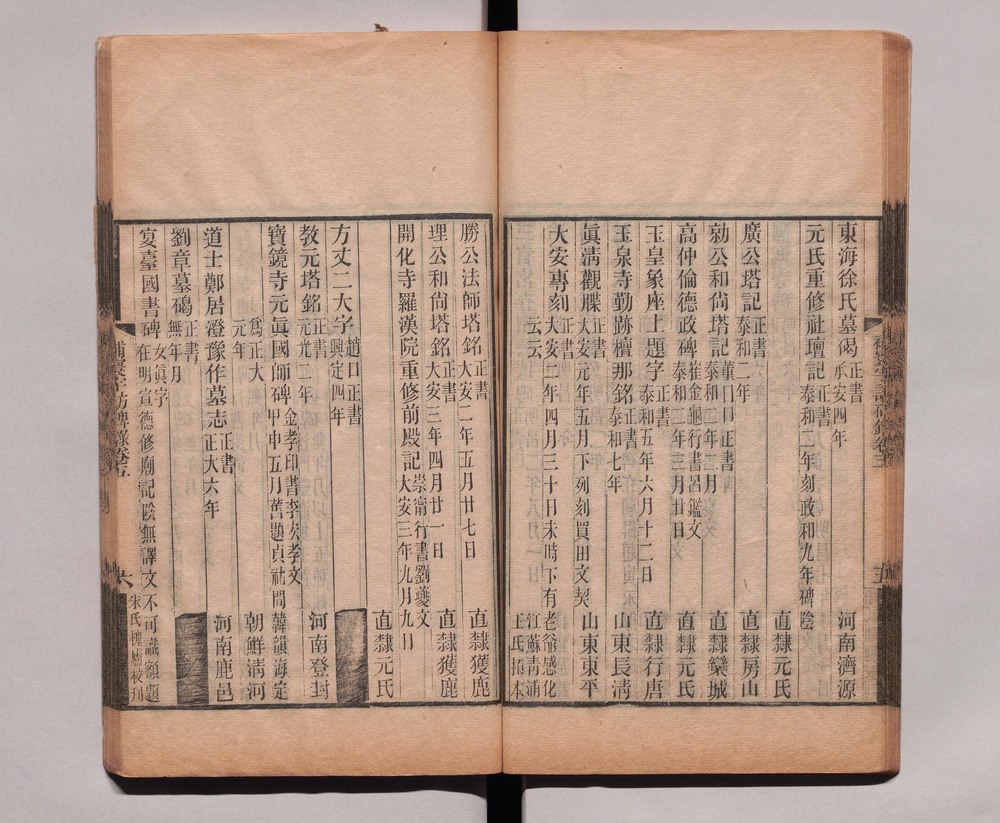 東海徐氏墓碣 正書 承安四年 河南濟源
元氏重修社壇記 正書 泰和二年刻政和九年碑陰 直隸元氏
廣公塔記 正書 泰和二年 直隸房山
勍公和尚塔記 董口口正書 泰和二年二月 直隸欒城
高仲倫德政碑 崔金龜行書呂鑑文 泰和二年三月廿日 直隸元氏
玉皇象座上題字 正書 泰和五年六月十二日 直隸行唐
玉泉寺勤跡檀那銘 正書 泰和七年 山東長清
眞清觀牒 正書 大安元年五月下列刻買田文契 山東東平
大安專刻 正書 大安二年四月三十日未時下有老爺感化云云 江蘇青浦王氏拓本
勝公法師塔銘 正書 大安二年五月廿七日 直隸獲鹿
理公和尚塔銘 正書 大安三年四月廿一日 直隸獲鹿
開化寺羅漢院重修前殿記 崇甯行書劉夔文 大安三年九月九日 直隸元氏
方丈二大字 趙口正書 興定四年
教元塔銘 正書 元光二年 河南登封
寶鏡寺元眞國師碑 金孝印書李次孝文 甲申五月舊題貞祐間爲正大元年 韓韻海定朝鮮清河
道士鄭居澄豫作墓志 正書 正大六年 河南鹿邑
劉章墓碣 正書 無年月
宴臺國書碑 女眞字 在明宣德修廟記陰無譯文不可識額題
補寰宇訪碑錄卷五 六 朱氏槐廬校刊